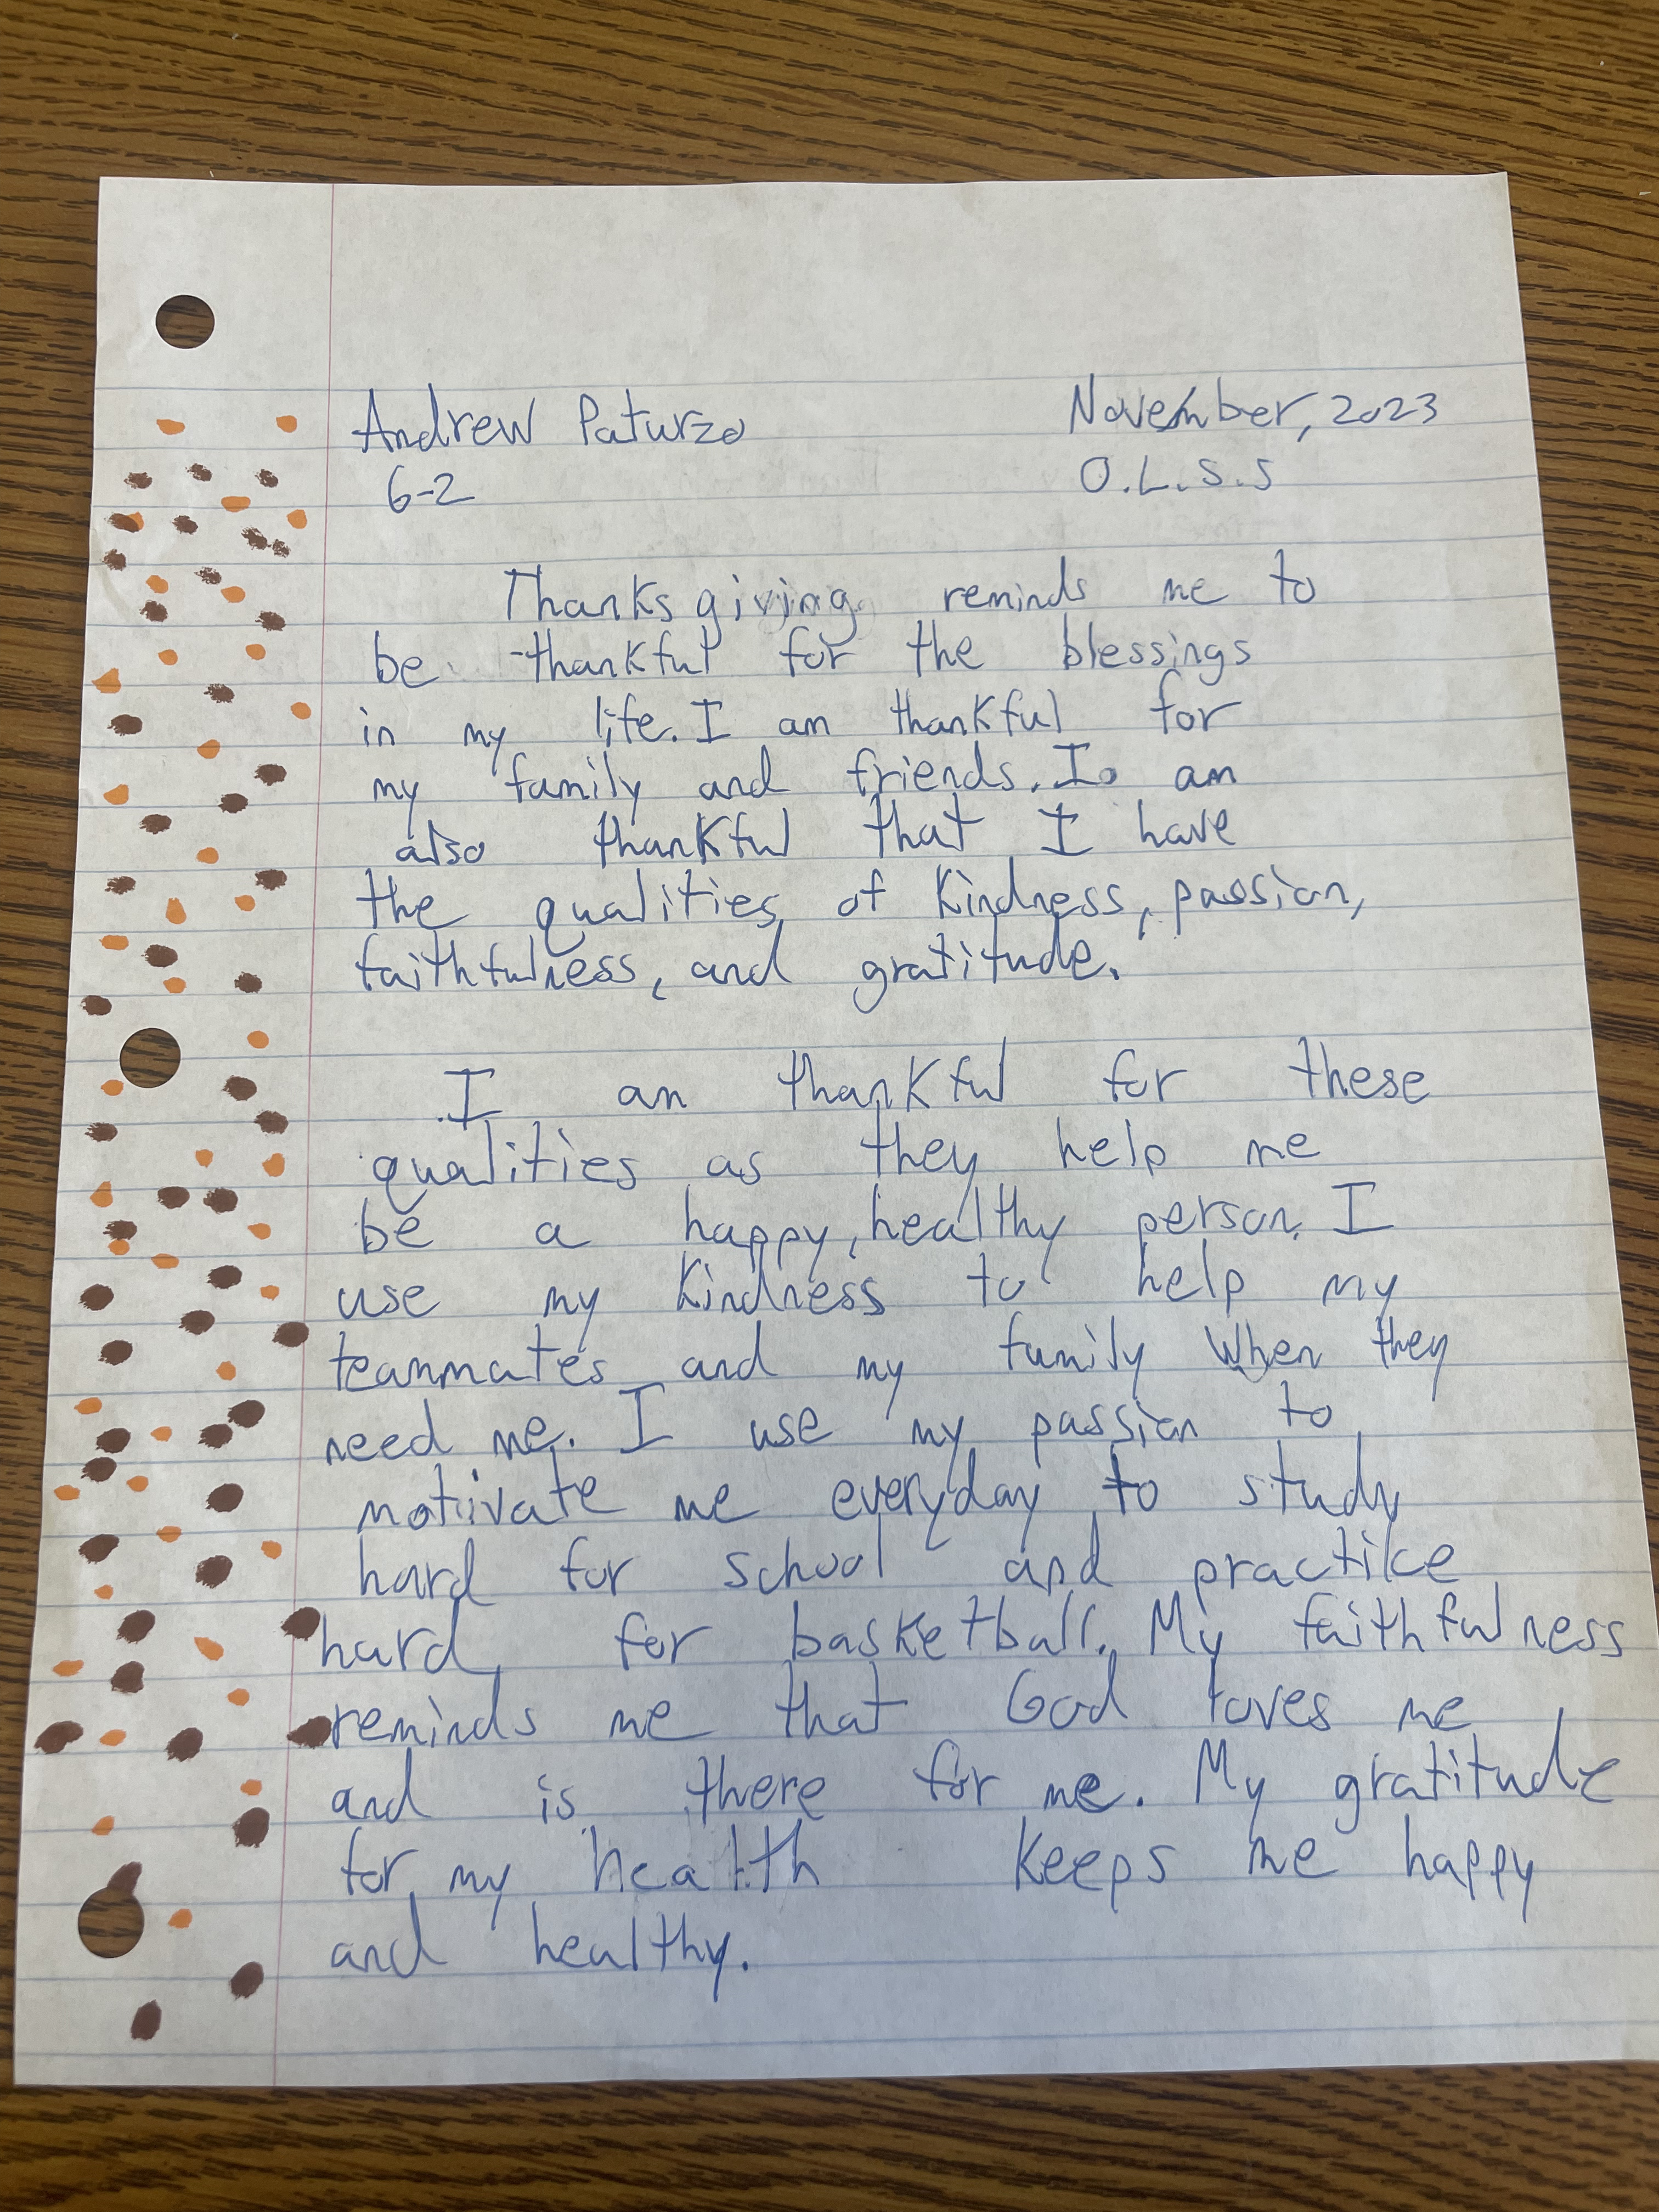 Andrew Paturzo November, 2023
6-2 O.L.S.S
Thanksgiving reminds me to
be thankful for the blessings
in my life. I am thankful for
my family and friends. I am
also thankful that I have
the qualities of kindness, passion,
faithfulness, and gratitude.
I am thankful for these
qualities as they help me
be a happy, healthy person. I
use my kindness to help my
teammates and my family when they
need me. I use my passion to
motivate me everyday to study
hard for school and practice
hard for basketball. My faithfulness
reminds me that God loves me
and is there for me. My gratitude
for my health keeps me happy
and healthy.